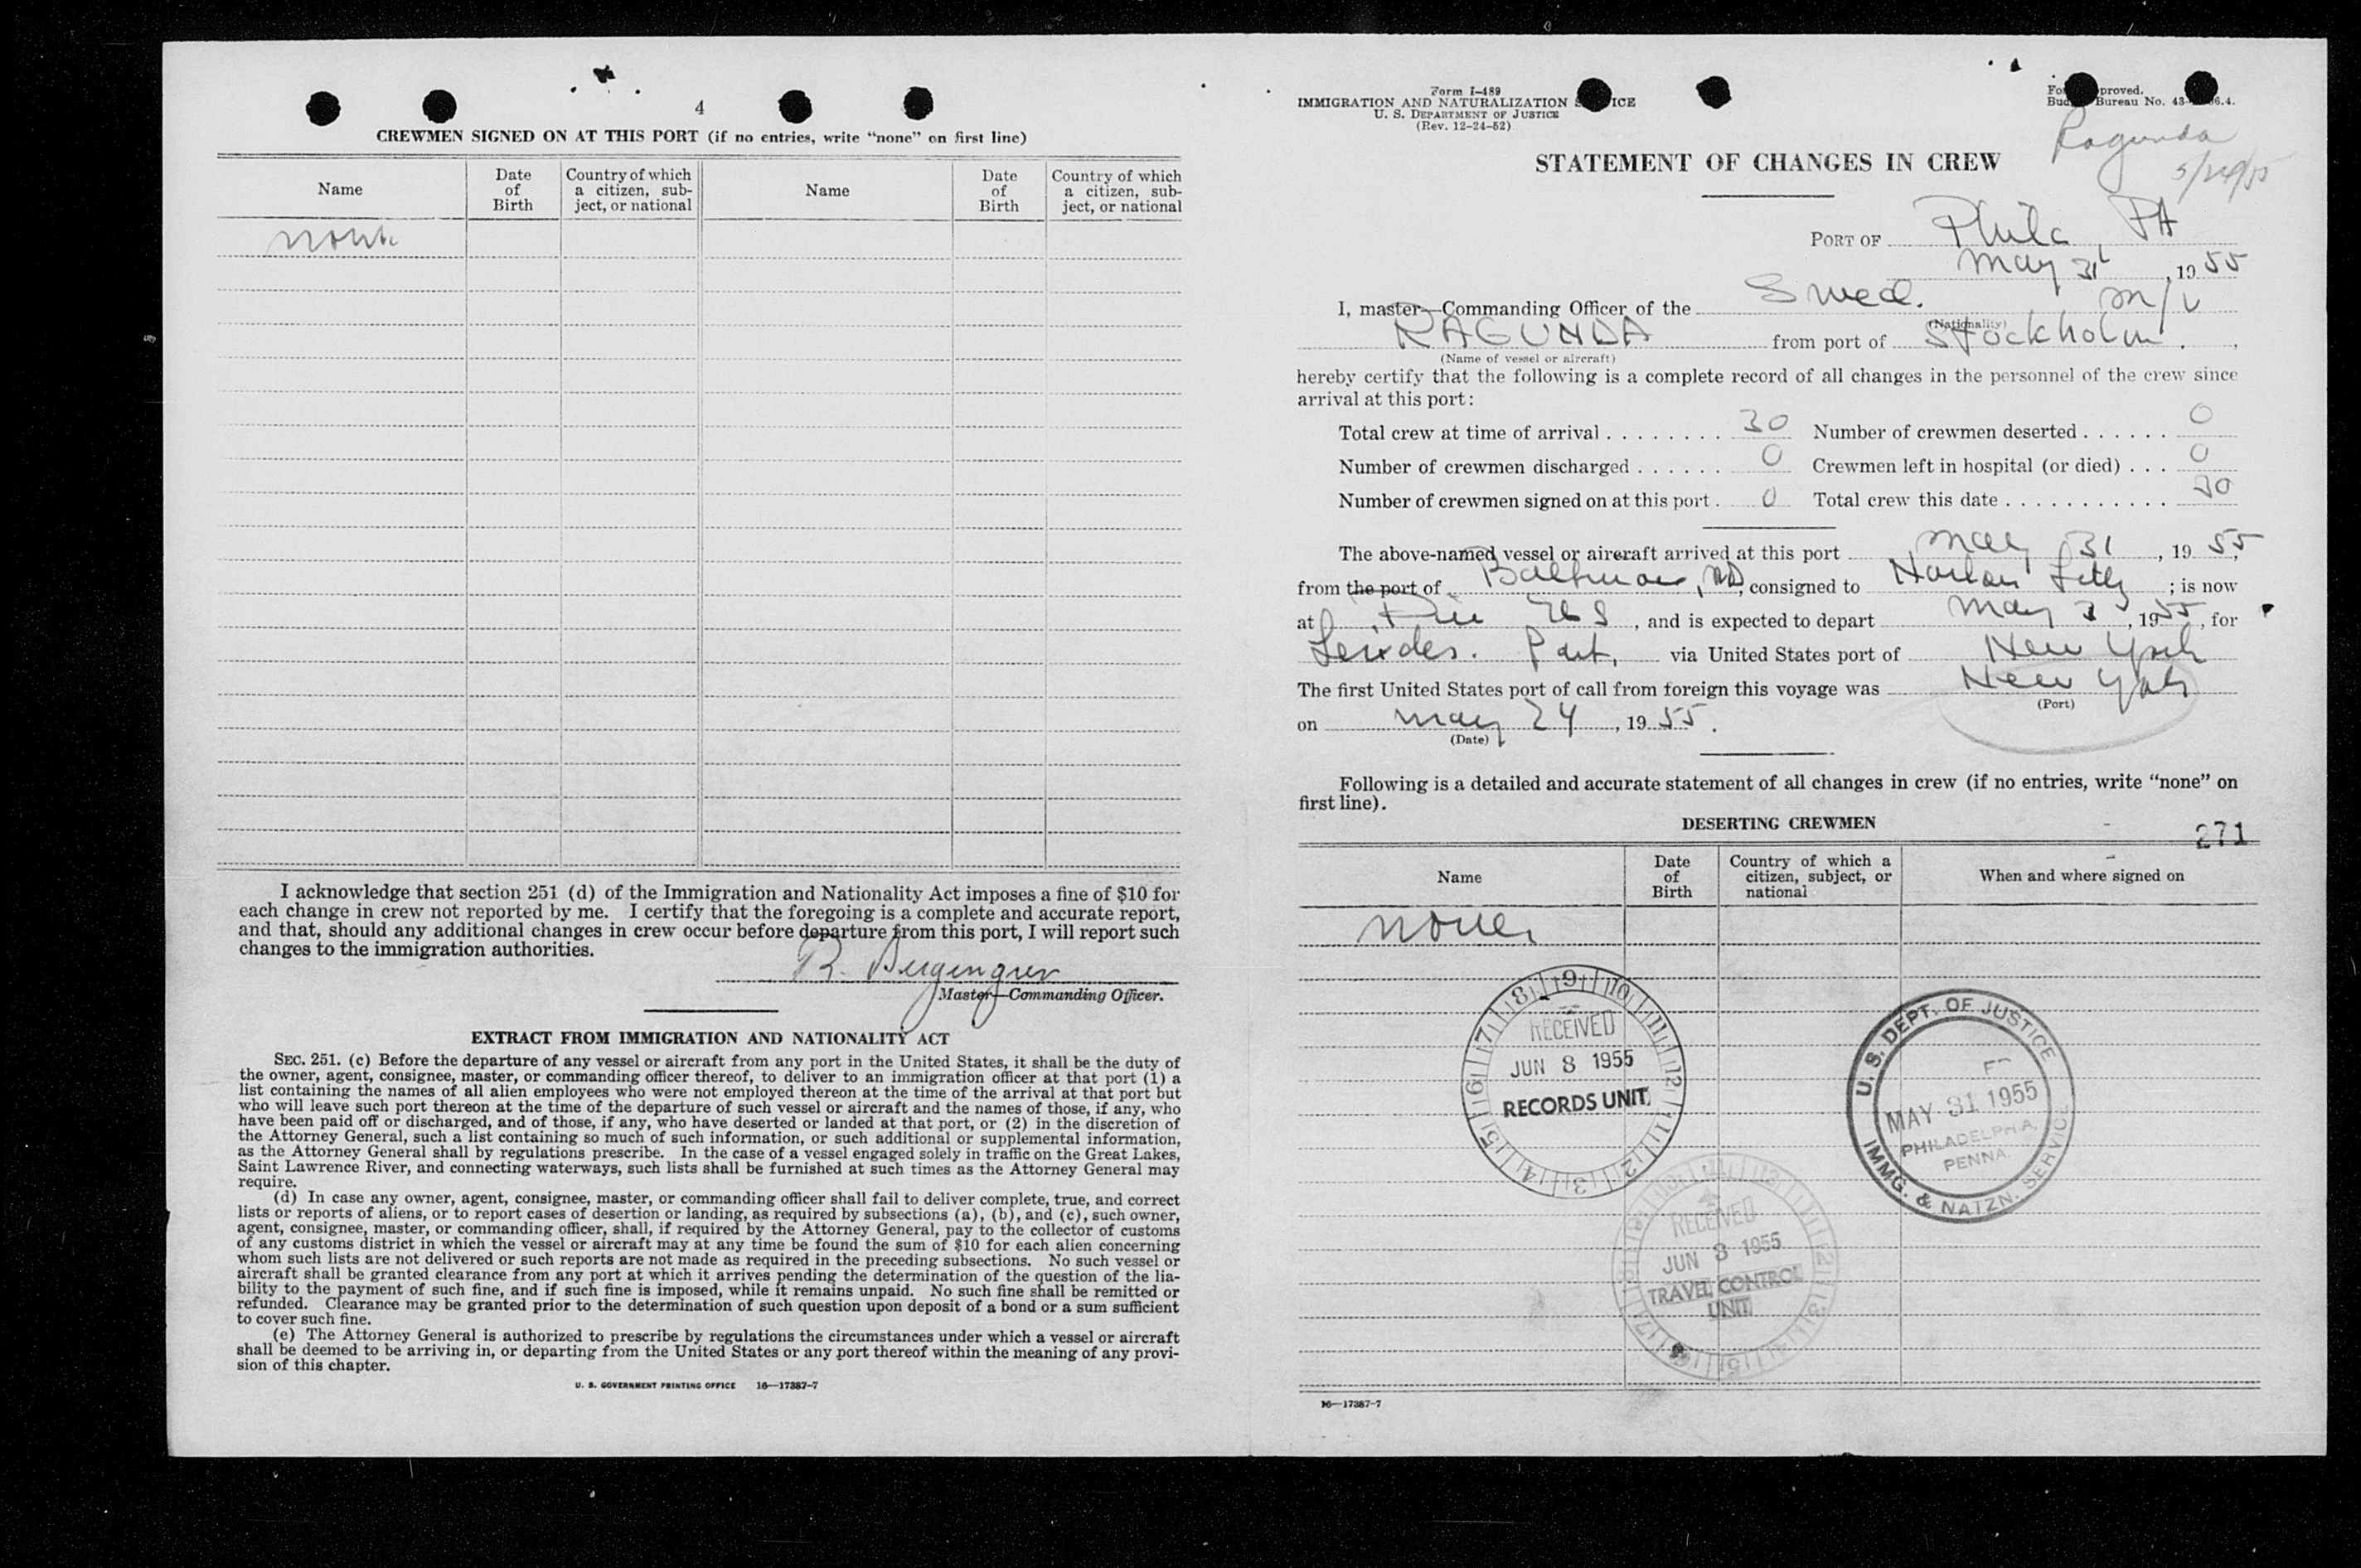 4
CREWMEN SIGNED ON AT THIS PORT (if no entries, write “none” on first line)
Name
Date of Birth
Country of which a citizen, subject, or national
Name
Date of Birth
Country of which a citizen, subject, or national
none
I acknowledge that section 251 (d) of the Immigration and Nationality Act imposes a fine of $10 for
each change in crew not reported by me. I certify that the foregoing is a complete and accurate report,
and that, should any additional changes in crew occur before departure from this port, I will report such
changes to the immigration authorities.
R.
Master—Commanding Officer.
EXTRACT FROM IMMIGRATION AND NATIONALITY ACT
SEC. 251. (c) Before the departure of any vessel or aircraft from any port in the United States, it shall be the duty of
the owner, agent, consignee, master, or commanding officer thereof, to deliver to an immigration officer at that port (1) a
list containing the names of all alien employees who were not employed thereon at the time of the arrival at that port but
who will leave such port thereon at the time of the departure of such vessel or aircraft and the names of those, if any, who
have been paid off or discharged, and of those, if any, who have deserted or landed at that port, or (2) in the discretion of
the Attorney General, such a list containing so much of such information, or such additional or supplemental information,
as the Attorney General shall by regulations prescribe. In the case of a vessel engaged solely in traffic on the Great Lakes,
Saint Lawrence River, and connecting waterways, such lists shall be furnished at such times as the Attorney General may
require.
(d) In case any owner, agent, consignee, master, or commanding officer shall fail to deliver complete, true, and correct
lists or reports of aliens, or to report cases of desertion or landing, as required by subsections (a), (b), and (c), such owner,
agent, consignee, master, or commanding officer, shall, if required by the Attorney General, pay to the collector of customs
of any customs district in which the vessel or aircraft may at any time be found the sum of $10 for each alien concerning
whom such lists are not delivered or such reports are not made as required in the preceding subsections. No such vessel or
aircraft shall be granted clearance from any port at which it arrives pending the determination of the question of the lia-
bility to the payment of such fine, and if such fine is imposed, while it remains unpaid. No such fine shall be remitted or
refunded. Clearance may be granted prior to the determination of such question upon deposit of a bond or a sum sufficient
to cover such fine.
(e) The Attorney General is authorized to prescribe by regulations the circumstances under which a vessel or aircraft
shall be deemed to be arriving in, or departing from the United States or any port thereof within the meaning of any provi-
sion of this chapter.
U. S. GOVERNMENT PRINTING OFFICE 16—17387-7
Form I-489
IMMIGRATION AND NATURALIZATION
U. S. DEPARTMENT OF JUSTICE
(Rev. 12-24-52)
Bureau No.
Ragunda
5/24/55
STATEMENT OF CHANGES IN CREW
PORT OF Phila, PA
May 31, 1955
I, master—Commanding Officer of the Swed. m/v
(Nationality)
RAGUNDA from port of Stockholm.
(Name of vessel or aircraft)
hereby certify that the following is a complete record of all changes in the personnel of the crew since
arrival at this port:
Total crew at time of arrival 30 Number of crewmen deserted 0
Number of crewmen discharged 0 Crewmen left in hospital (or died) 0
Number of crewmen signed on at this port 0 Total crew this date 30
The above-named vessel or aircraft arrived at this port May 31, 1955,
from the port of Baltimore, MD, consigned to ; is now
at , and is expected to depart May , 1955, for
via United States port of New York
The first United States port of call from foreign this voyage was New York
(Port)
on May 24, 1955.
(Date)
Following is a detailed and accurate statement of all changes in crew (if no entries, write “none” on
first line).
DESERTING CREWMEN
271
Name
Date of Birth
Country of which a citizen, subject, or national
When and where signed on
none
RECEIVED
JUN 8 1955
RECORDS UNIT
U. S. DEPT. OF JUSTICE
MAY 31 1955
PHILADELPHIA,
PENNA.
IMMG. & NATZN. SERVICE
RECEIVED
JUN 8 1955
TRAVEL CONTROL
UNIT
16—17387-7